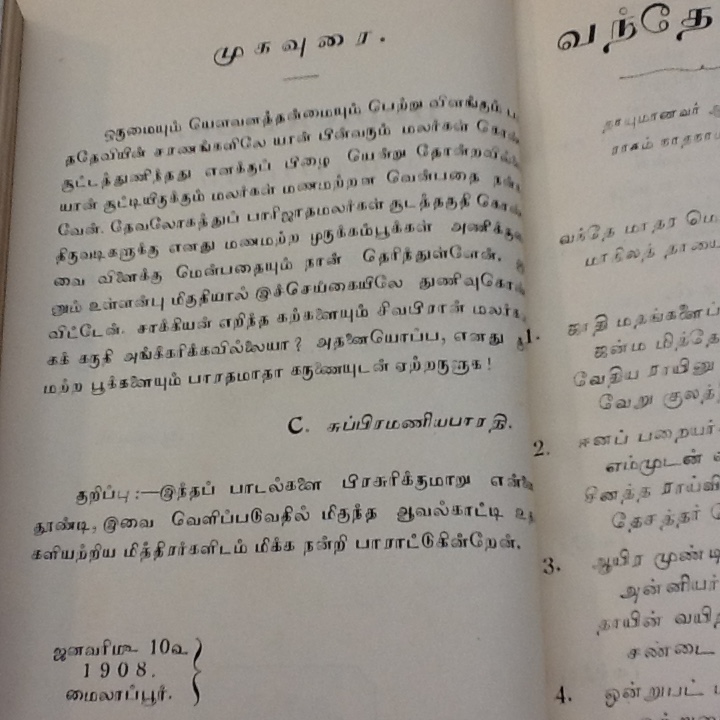 முகவுரை.
ஒருமையும் யௌவனத்தன்மையும் பெற்று விளங்கும்
ததேவியின் சரணங்களிலே யான் பின்வரும் மலர்கள்
சூட்டத்துணிந்தது எனக்குப் பிழை யென்று
யான் சூட்டியிருக்கும் மலர்கள் மணமற்றன வென்பதை
வேன். தேவலோகத்துப் பாரிஜாதமலர்கள் சூடத்தகுதி
திருவடிகளுக்கு எனது மணமற்ற முருக்கம்பூக்கள்
வை விளைக்கு மென்பதையும் நான் தெரிந்துள்ளேன்.
னும் உள்ளன்பு மிகுதியால் இச்செய்கையிலே
விட்டேன். சாக்கியன் எறிந்த கற்களையும் சிவபிரான்
கக் கருதி அங்கீகரிக்கவில்லையா? அதனையொப்ப, எனது
மற்ற பூக்களையும் பாரதமாதா கருணையுடன் ஏற்றருளுக!
C. சுப்பிரமணியபாரதி.
குறிப்பு:—இந்தப் பாடல்களை பிரசுரிக்குமாறு
தூண்டி, இவை வெளிப்படுவதில் மிகுந்த ஆவல்காட்டி
களியற்றிய மித்திரர்களிடம் மிக்க நன்றி பாராட்டுகின்றேன்.
ஜனவரிமீ 10௳
1908.
மைலாப்பூர்.
வந்தே
தாயுமானவர்
ராகம்
வந்தே மாதர
மாநிலத்
1. ஜாதி மதங்களைப்
ஜன்ம
வேதிய ராயினு
வேறு
2. ஈனப்
எம்முடன்
தேசத்தர்
3. ஆயிர முண்டி
அன்னியர்
தாயின்
சண்டை
4. ஒன்றுபட்